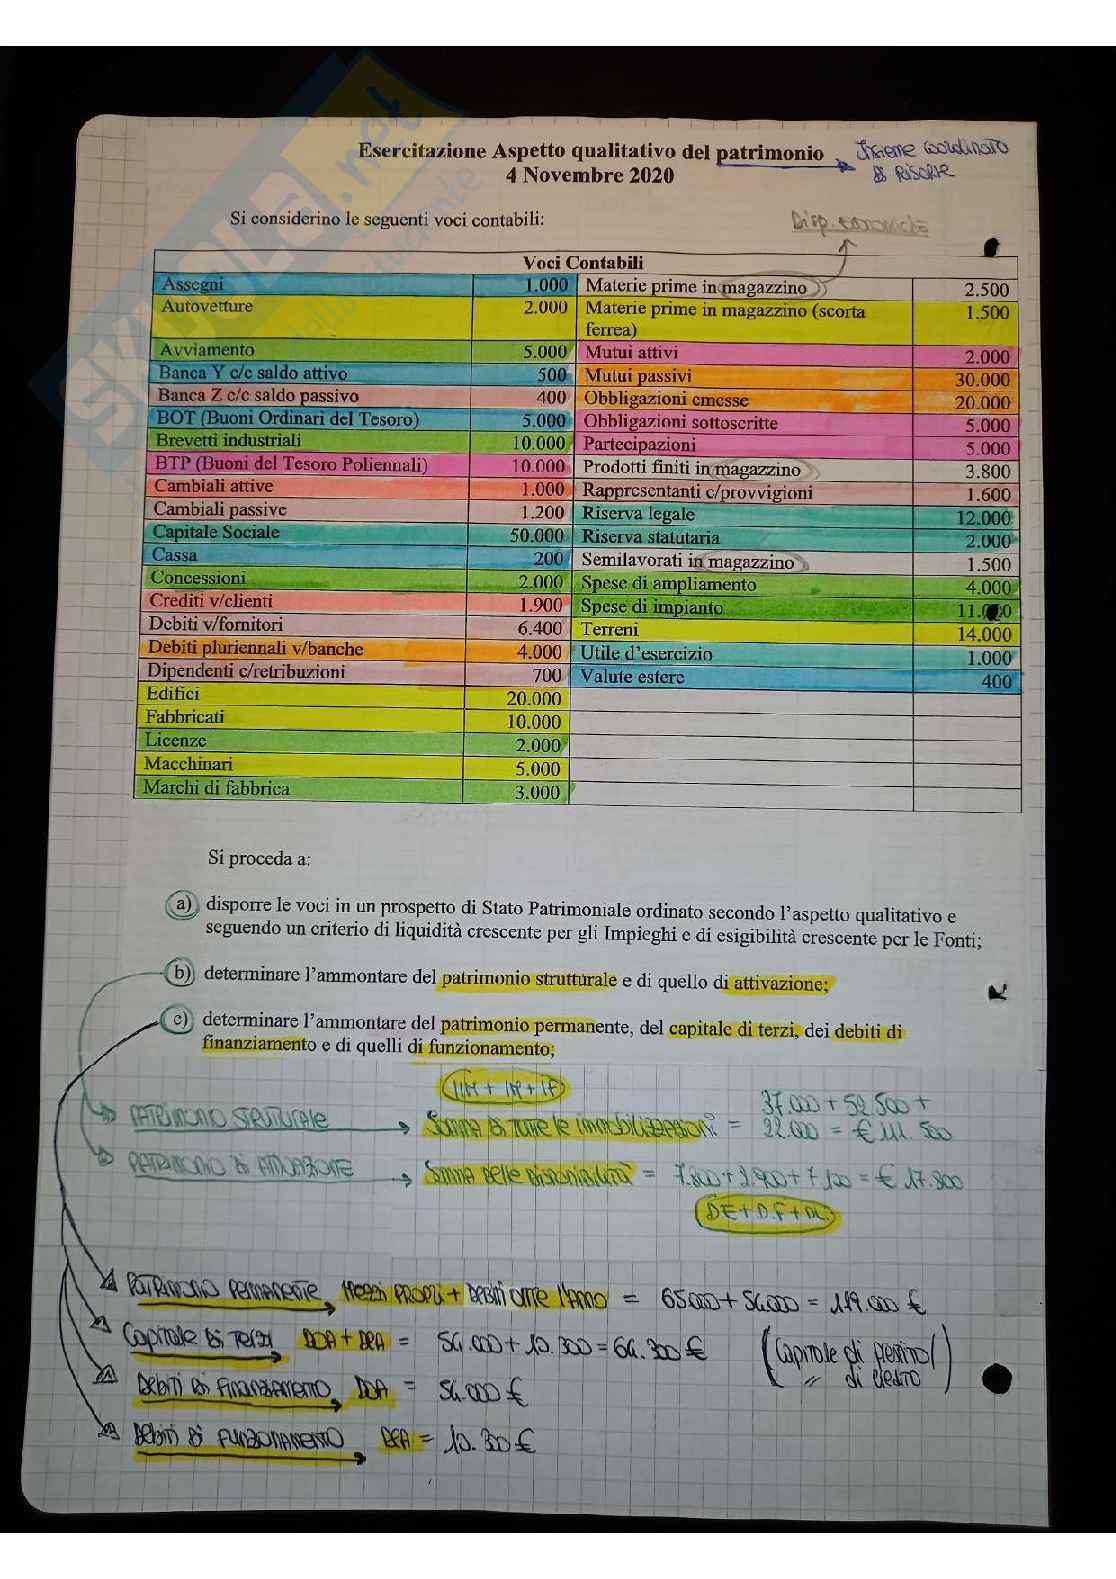 Esercitazione Aspetto qualitativo del patrimonio
4 Novembre 2020
Insieme coordinato
di risorse
Si considerino le seguenti voci contabili:
Disp. economiche
Voci Contabili
Assegni 1.000 Materie prime in magazzino 2.500
Autovetture 2.000 Materie prime in magazzino (scorta ferrea) 1.500
Avviamento 5.000 Mutui attivi 2.000
Banca Y c/c saldo attivo 500 Mutui passivi 30.000
Banca Z c/c saldo passivo 400 Obbligazioni emesse 20.000
BOT (Buoni Ordinari del Tesoro) 5.000 Obbligazioni sottoscritte 5.000
Brevetti industriali 10.000 Partecipazioni 5.000
BTP (Buoni del Tesoro Poliennali) 10.000 Prodotti finiti in magazzino 3.800
Cambiali attive 1.000 Rappresentanti c/provvigioni 1.600
Cambiali passive 1.200 Riserva legale 12.000
Capitale Sociale 50.000 Riserva statutaria 2.000
Cassa 200 Semilavorati in magazzino 1.500
Concessioni 2.000 Spese di ampliamento 4.000
Crediti v/clienti 1.900 Spese di impianto 11.000
Debiti v/fornitori 6.400 Terreni 14.000
Debiti pluriennali v/banche 4.000 Utile d'esercizio 1.000
Dipendenti c/retribuzioni 700 Valute estere 400
Edifici 20.000
Fabbricati 10.000
Licenze 2.000
Macchinari 5.000
Marchi di fabbrica 3.000
Si proceda a:
a) disporre le voci in un prospetto di Stato Patrimoniale ordinato secondo l'aspetto qualitativo e
seguendo un criterio di liquidità crescente per gli Impieghi e di esigibilità crescente per le Fonti;
b) determinare l'ammontare del patrimonio strutturale e di quello di attivazione;
c) determinare l'ammontare del patrimonio permanente, del capitale di terzi, dei debiti di
finanziamento e di quelli di funzionamento;
IM + IM + IF
PATRIMONIO STRUTTURALE Somma di tutte le immobilizzazioni = 37.000 + 52.500 +
22.000 = € 111.500
PATRIMONIO DI ATTIVAZIONE Somma delle disponibilità = 7.800 + 2.900 + 7.100 = € 17.800
DE + D.F + DL
PATRIMONIO PERMANENTE MEZZI PROPRI + DEBITI OLTRE L'ANNO = 65.000 + 54.000 = 119.000 €
Capitale di Terzi DOA + DEA = 54.000 + 10.300 = 64.300 € (Capitale di
" di credito)
DEBITI DI FINANZIAMENTO DOA = 54.000 €
DEBITI DI FUNZIONAMENTO DEA = 10.300 €
SKUOLA.net